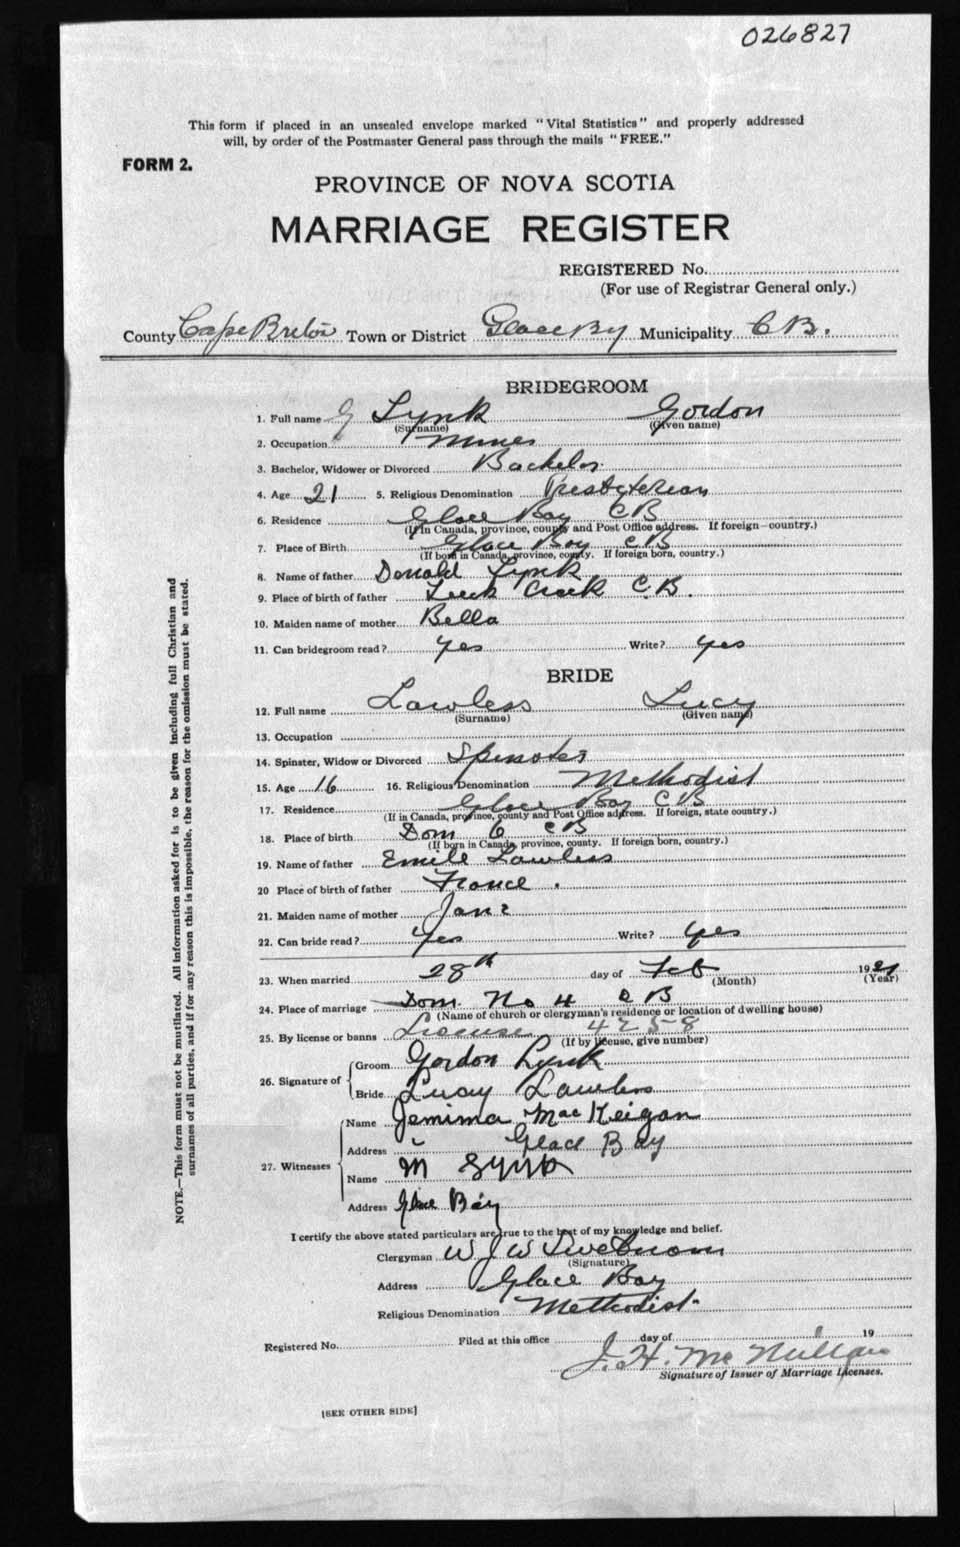 026827
This form if placed in an unsealed envelope marked "Vital Statistics" and properly addressed
will, by order of the Postmaster General pass through the mails "FREE."
FORM 2.
PROVINCE OF NOVA SCOTIA
MARRIAGE REGISTER
REGISTERED No.
(For use of Registrar General only.)
County Cape Breton Town or District Glace By Municipality C B.
BRIDEGROOM
1. Full name G Lynk Gordon
(Surname) (Given name)
2. Occupation Miner
3. Bachelor, Widower or Divorced Bachelor
4. Age 21 5. Religious Denomination Presbyterian
6. Residence Glace Bay CB
(If in Canada, province, county and Post Office address. If foreign—country.)
7. Place of Birth Glace Bay CB
(If born in Canada, province, county. If foreign born, country.)
8. Name of father Donald Lynk
9. Place of birth of father Creek C.B.
10. Maiden name of mother Bella
11. Can bridegroom read? yes Write? yes
BRIDE
12. Full name Lawless Lucy
(Surname) (Given name)
13. Occupation
14. Spinster, Widow or Divorced Spinster
15. Age 16 16. Religious Denomination Methodist
17. Residence Glace Bay CB
(If in Canada, province, county and Post Office address. If foreign, state country.)
18. Place of birth Dom 6 CB
(If born in Canada, province, county. If foreign born, country.)
19. Name of father Emile Lawless
20 Place of birth of father France.
21. Maiden name of mother Jane
22. Can bride read? Yes Write? yes
23. When married 28th day of Feb 1921
(Month) (Year)
24. Place of marriage Dom. No 4 C B
(Name of church or clergyman's residence or location of dwelling house)
25. By license or banns License 4258
(If by license, give number)
26. Signature of Groom Gordon Lynk
Bride Lucy Lawless
27. Witnesses Name Jemima MacKeigan
Address Glace Bay
Name M Lynk
Address Glace Bay
I certify the above stated particulars are true to the best of my knowledge and belief.
Clergyman W J W
(Signature)
Address Glace Bay
Religious Denomination Methodist
Registered No. Filed at this office day of 19
J. H. McMillan
Signature of Issuer of Marriage Licenses.
[SEE OTHER SIDE]
NOTE.—This form must not be mutilated. All information asked for is to be given including full Christian and
surnames of all parties, and if for any reason this is impossible, the reason for the omission must be stated.